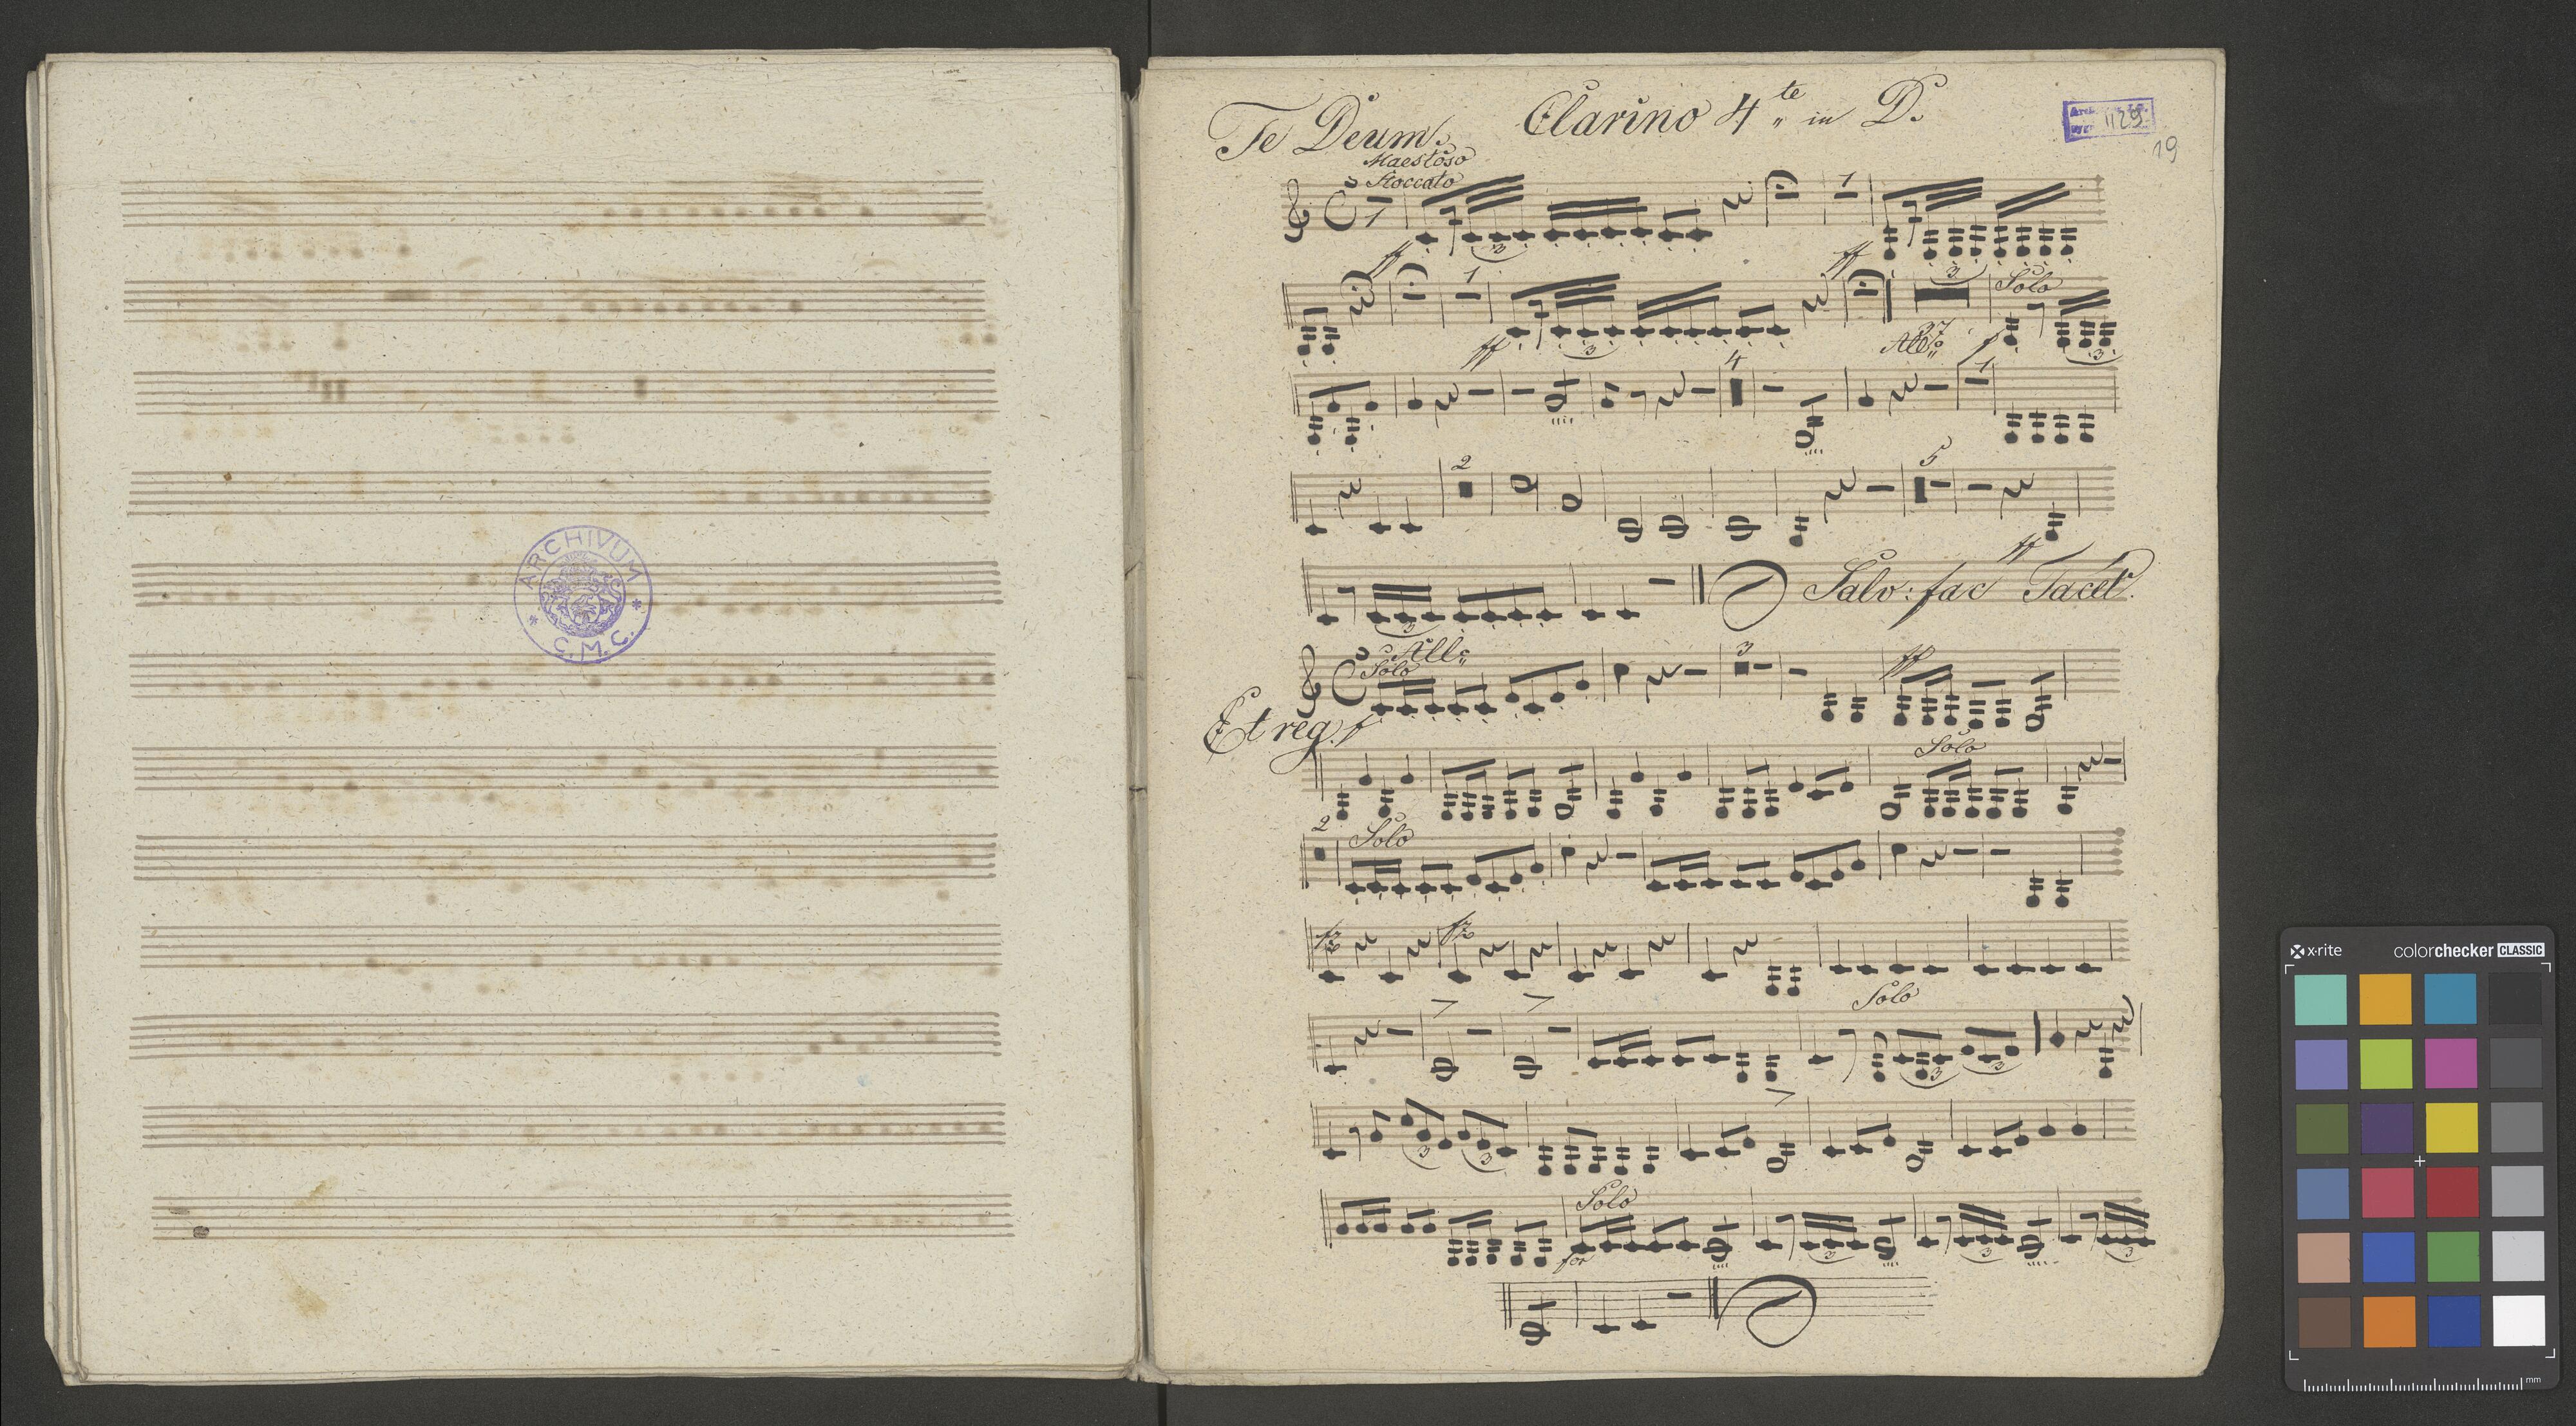 ARCHIVUM
* C.M.C. *
Te Deum.
Clarino 4te in D.
1129
19
Maestoso
Stoccato
1
ff
3
1
ff
1
ff
3
3
37
All:o
Solo
f
3
4
1
2
5
ff
3
Salv: fac Tacet.
All:o
Solo
3
ff
Et reg. f
Solo
2
Solo
fz
fz
Solo
3
3
3
3
Solo
for
3
3
3
x-rite
colorchecker CLASSIC
mm